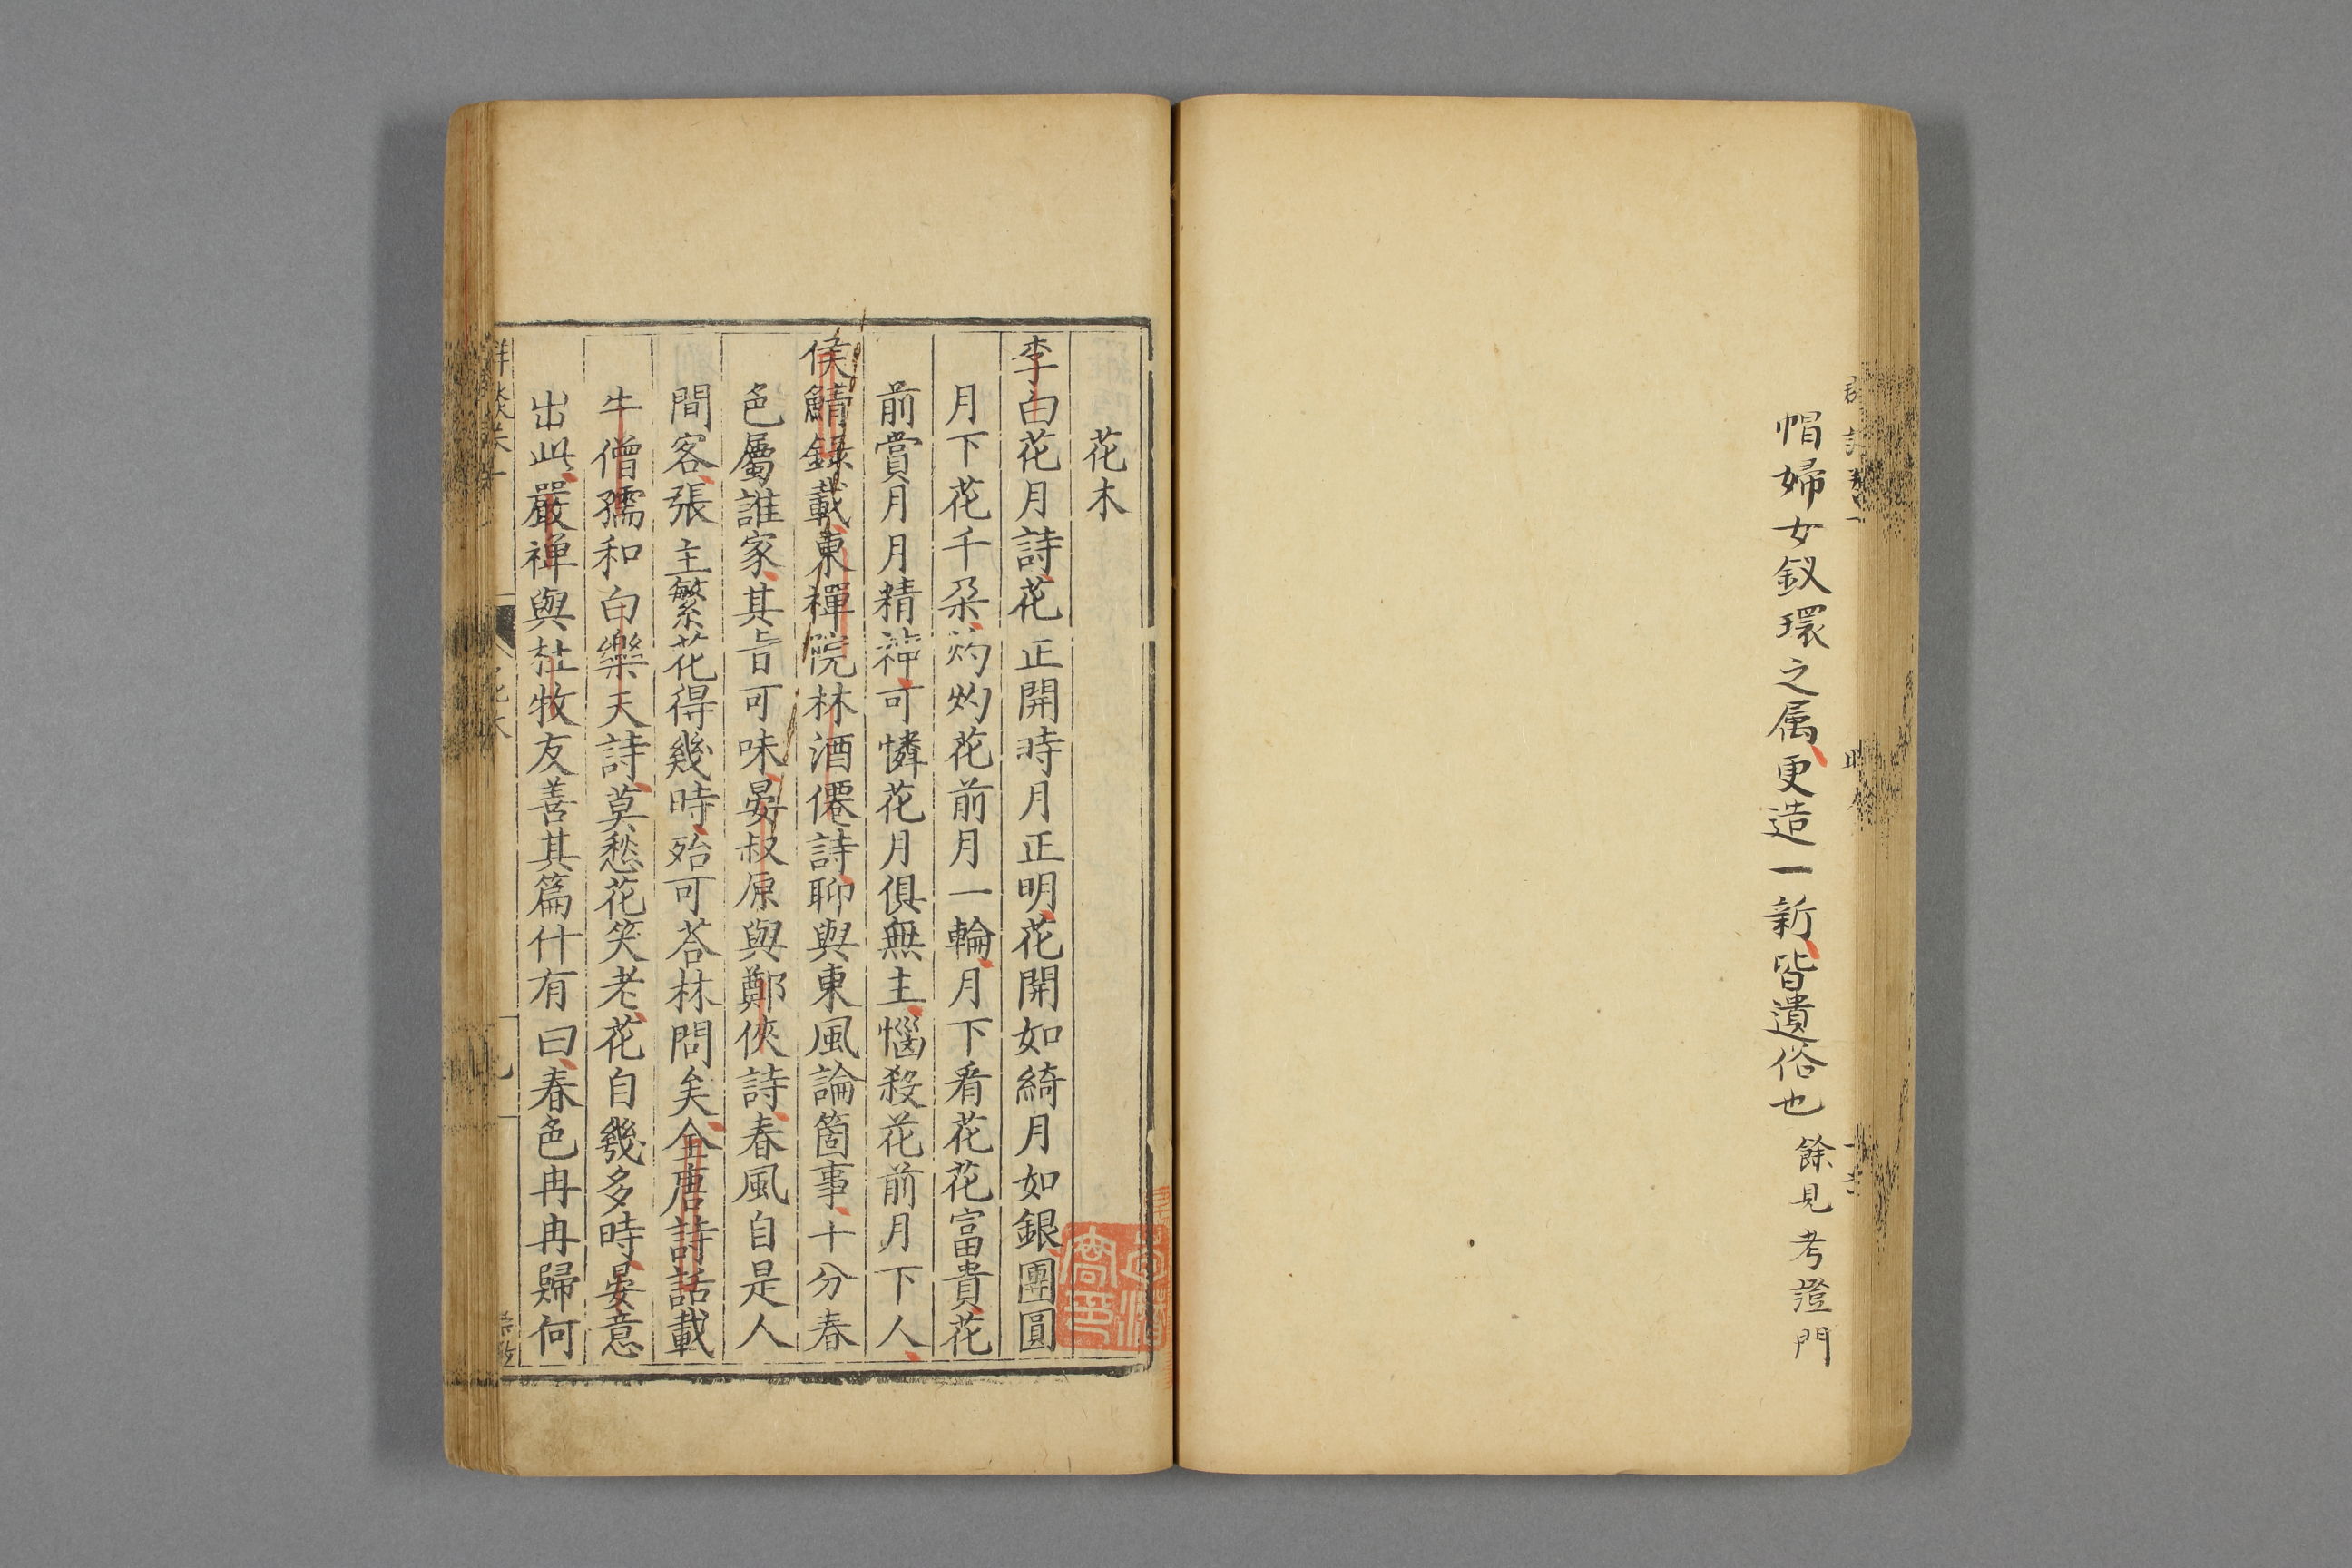 帽婦女釵環之属更造一新皆遺俗也餘見考證門
花木
李白花月詩花正開時月正明花開如綺月如銀團圓
月下花千朵灼灼花前月一輪月下看花花富貴花
前賞月月精神可憐花月俱無主惱殺花前月下人
侯鯖録載東禪院林酒僊詩聊與東風論箇事十分春
色屬誰家其旨可味晏叔原與鄭俠詩春風自是人
間客張主繁花得幾時殆可荅林問矣全唐詩話載
牛僧孺和白樂天詩莫愁花笑老花自幾多時晏意
出此嚴禅與杜牧友善其篇什有曰春色冉冉歸何